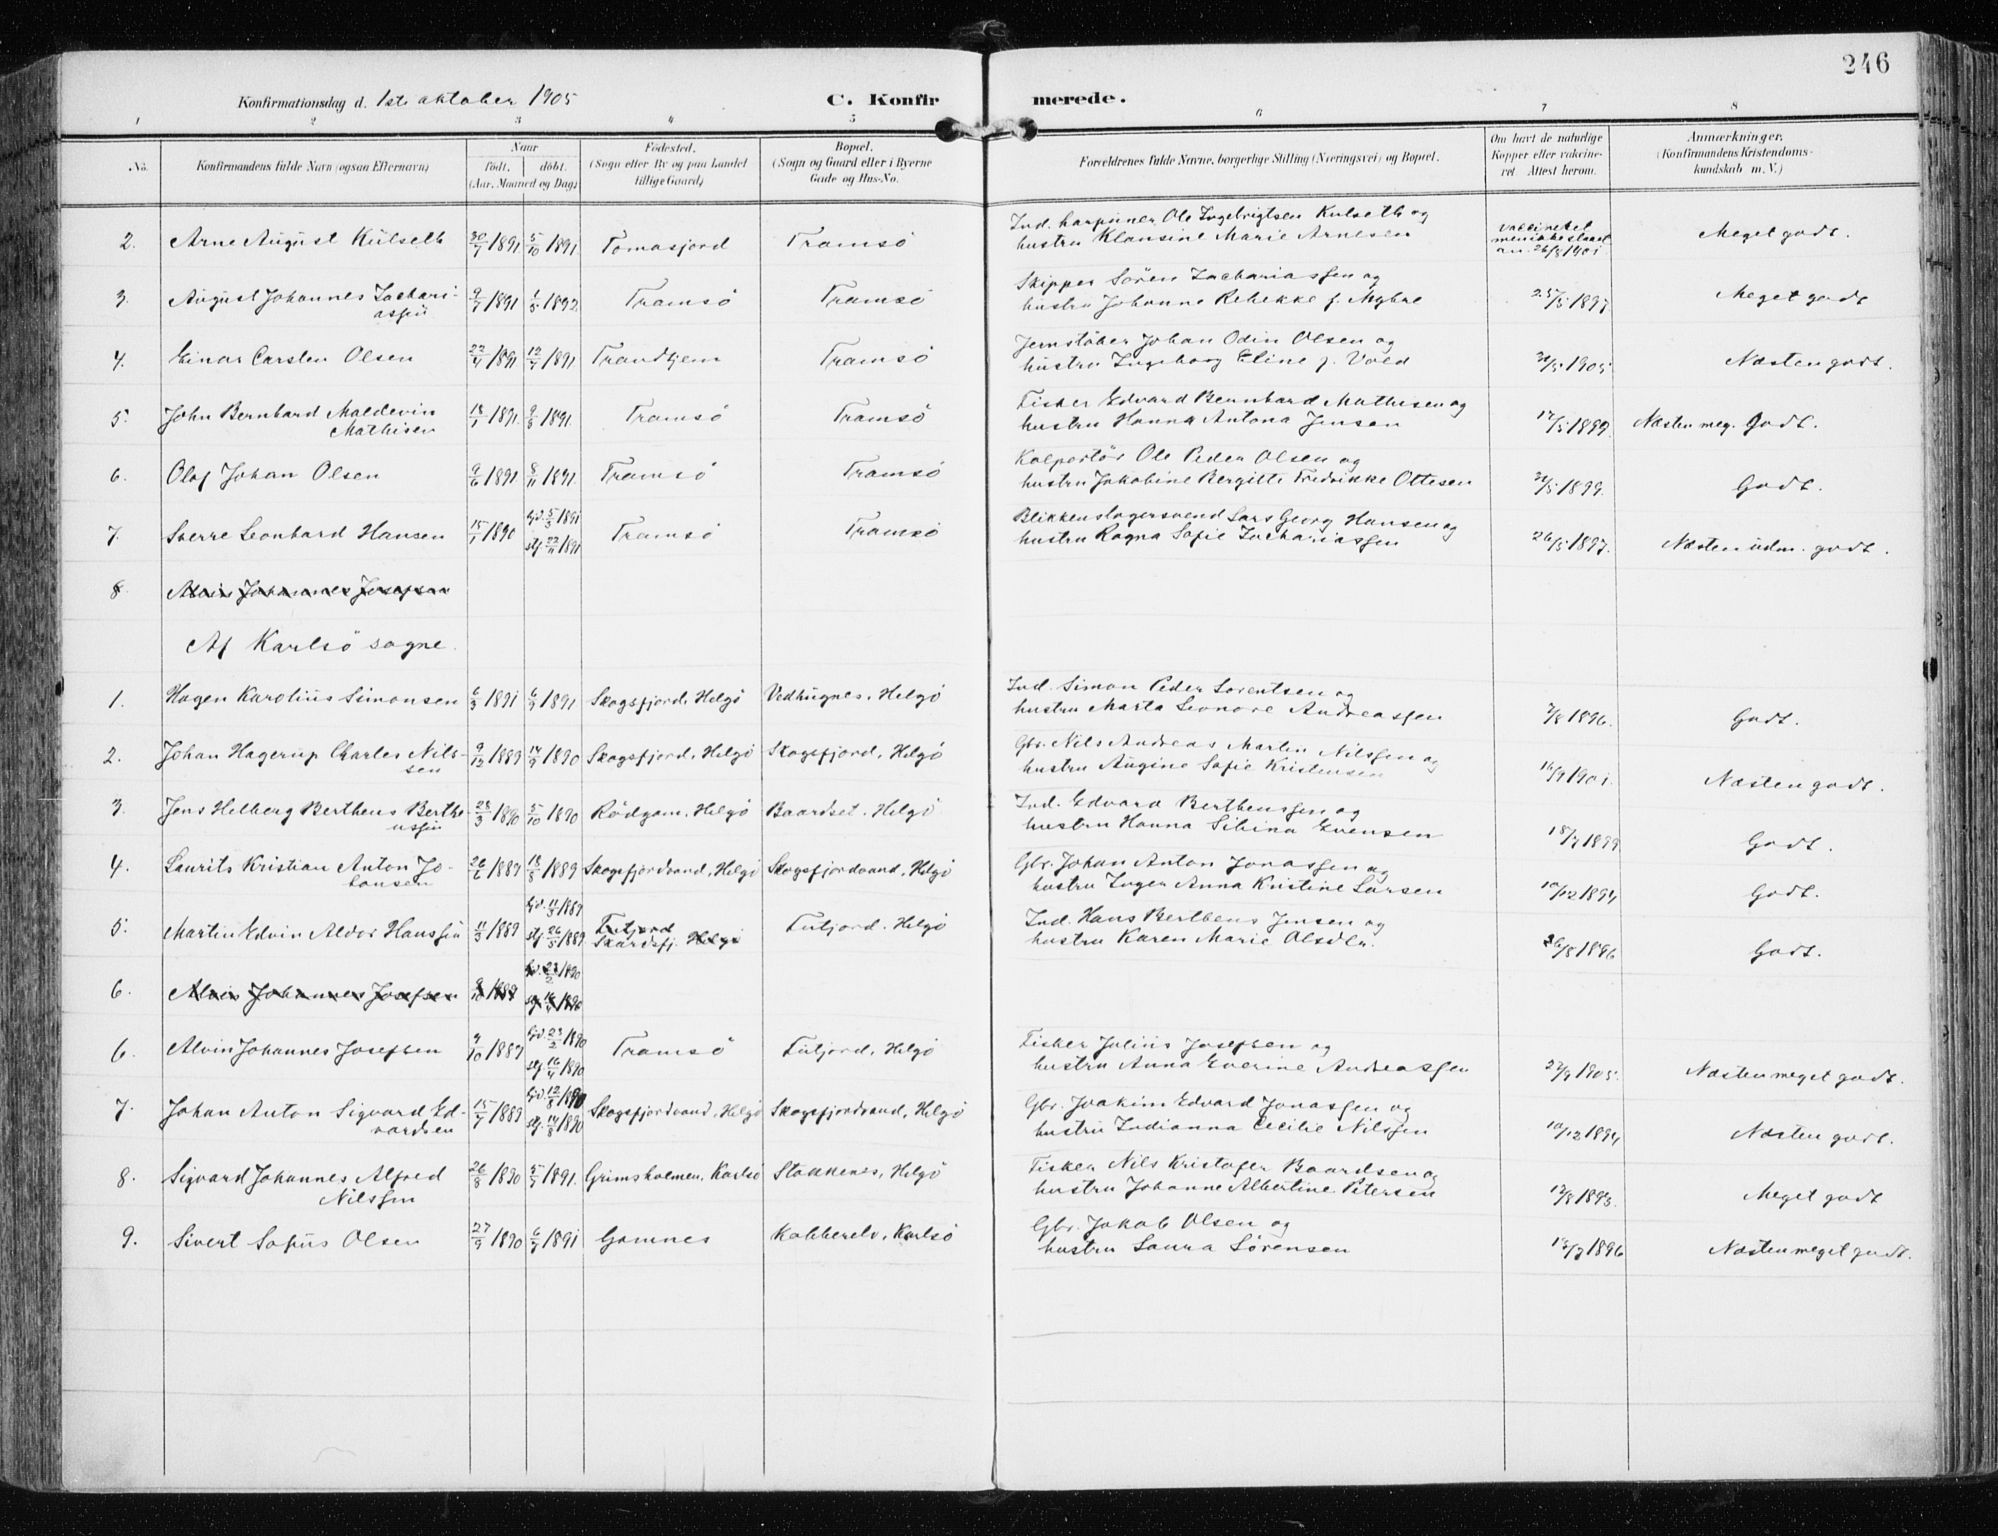 246
Konfirmationsdag d. 1ste oktober 1905 C. Konfirmerede.
1 2 3 4 5 6 7 8
No. Konfirmandens fulde Navn (ogsaa Efternavn) Naar født. døbt. (Aar, Maaned og Dag) Fødested. (Sogn eller By og paa Landet tillige Gaard) Bopæl. (Sogn og Gaard eller i Byerne Gade og Hus-No. Forældrenes fulde Navne, borgerlige Stilling (Næringsvei) og Bopæl. Om havt de naturlige Kopper eller vakcineret Attest herom. Anmærkninger. (Konfirmandens Kristendomskundskab m. V.)
2. Arne August Külseth 30/7 1891 5/10 1891 Tomasjord Tromsö Ind. harpuner Ole Ingebrigtsen Kulseth og
hustru Klausine Marie Arnesen vaccineret men ikke slaaet an 26/8 1901 Meget godt.
3. August Johannes Zachari-
assen 9/7 1891 1/5 1892 Tromsö Tromsö Skipper Sören Zachariassen og
hustru Johanne Rebekke f. Myhre 25/5 1897 Meget godt
4. Einar Carsten Olsen 22/4 1891 12/7 1891 Trondhjem Tromsö Jernstöber Johan Odin Olsen og
hustru Ingeborg Eline f. Vold 31/5 1905 Næsten godt.
5. John Bernhard Maldevin
Mathisen 18/7 1891 9/8 1891 Tromsö Tromsö Fisker Edvard Bernhard Mathisen og
hustru Hanna Antona Jensen 17/5 1899 Næsten meg. Godt.
6. Olaf Johan Olsen 9/6 1891 8/11 1891 Tromsö Tromsö Kolportör Ole Peder Olsen og
hustru Jakobine Bergitte Fredrikke Ottesen 31/5 1899 Godt.
7. Sverre Leonhard Hansen 15/1 1890 hjd. 5/3 1891
stf. 22/11 1891 Tromsö Tromsö Blikkenslagersvend Lars Georg Hansen og
hustru Ragna Sofie Zachariassen 26/5 1897. Næsten udm. godt.
8. Alvin Johannes Josefsen
Af Karlsö sogne.
1. Hagen Karolius Simonsen 6/3 1891 6/9 1891 Skogsfjord, Helgö Vedhugnes, Helgö Ind. Simon Peder Lorentsen og
hustru Marta Leonore Andreassen 7/8 1896. Godt.
2. Johan Hagerup Charles Nils-
sen 9/12 1889 14/9 1890 Skogsfjord, Helgö Skogsfjord, Helgö Gbr. Nils Andreas Martin Nilssen og
hustru Augine Sofie Kristensen 16/9 1901. Næsten godt.
3. Jens Helberg Bertheus Berthe-
ussen 28/3 1890 5/10 1890 Rödgam, Helgö Baardset, Helgö Ind. Edvard Bertheussen og
hustru Hanna Sibina Evensen 18/7 1899 Godt.
4. Laurits Kristian Anton Jo-
hansen 26/6 1889 18/8 1889 Skogsfjordvand, Helgö Skogsfjordvand, Helgö Gbr. Johan Anton Jonassen og
hustru Inger Anna Kristine Larsen 10/12 1894 Godt.
5. Martin Edvin Aldor Hanssen 11/3 1889 hjd. 11/3 1889
stf. 26/5 1889 Futjord
Skardsfj. Helgö Futjord, Helgö Ind. Hans Bertheus Jensen og
hustru Karen Marie Olsdtr. 26/8 1896 Godt.
6. Alvin Johannes Josefsen 9/10 1889 hjd. 23/2 1890
stf. 16/4 1890
6. Alvin Johannes Josefsen 9/10 1889 hjd. 23/2 1890
stf. 16/4 1890 Tromsö Futjord, Helgö Fisker Julius Josefsen og
hustru Anna Everine Andreassen 27/9 1905. Næsten meget godt.
7. Johan Anton Sigvard Ed-
vardsen 15/7 1889 hjd. 12/8 1890
stf. 14/8 1890 Skogsfjordvand, Helgö Skogsfjordvand, Helgö Gbr. Joakim Edvard Jonassen og
hustru Indianna Cecilie Nilssen 10/12 1894 Næsten godt.
8. Sigvard Johannes Alfred
Nilssen 26/8 1890 5/7 1891. Grimsholmen, Karlsö Stakkenes, Helgö Fisker Nils Kristofer Baardsen og
hustru Johanne Albertine Petersen 12/8 1893. Meget godt
9. Sivert Sofus Olsen 27/9 1890 6/9 1891 Gamnes Kobberelv, Karlsö Gbr. Jakob Olsen og
hustru Laura Sørensen 13/7 1896 Næsten meget godt.